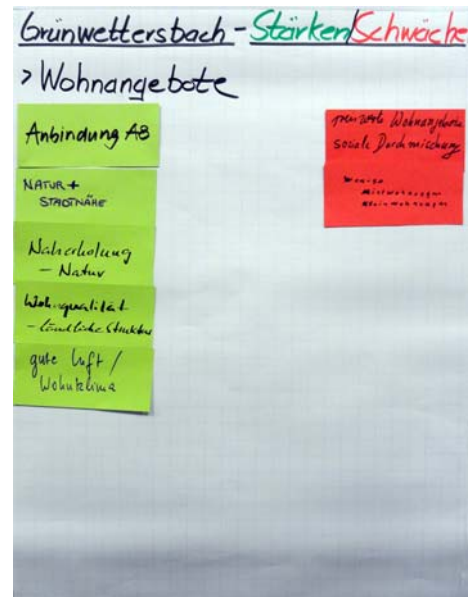 Grünwettersbach - Stärken/Schwäche
> Wohnangebote
Anbindung A8
NATUR +
STADTNÄHE
Naherholung
- Natur
Wohnqualität
- ländliche Struktur
gute Luft /
Wohnklima
Wohnangebote
soziale Durchmischung
Wenige
Mietwohnungen
Kleinwohnungen